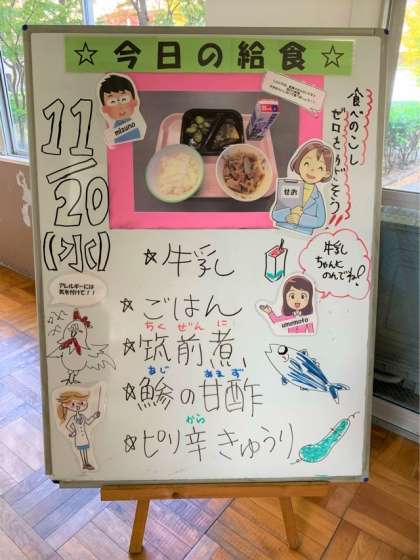 ☆今日の給食☆
11/20
(水)
mizuno
せお
食べのこし
ゼロをめざそう!
☆牛乳
牛乳
ちゃんと
のんでね!
アレルギーには
気を付けて!!
☆ごはん
umemoto
ちくぜんに
☆筑前煮
あじ あまず
☆鯵の甘酢
から
☆ピリ辛きゅうり